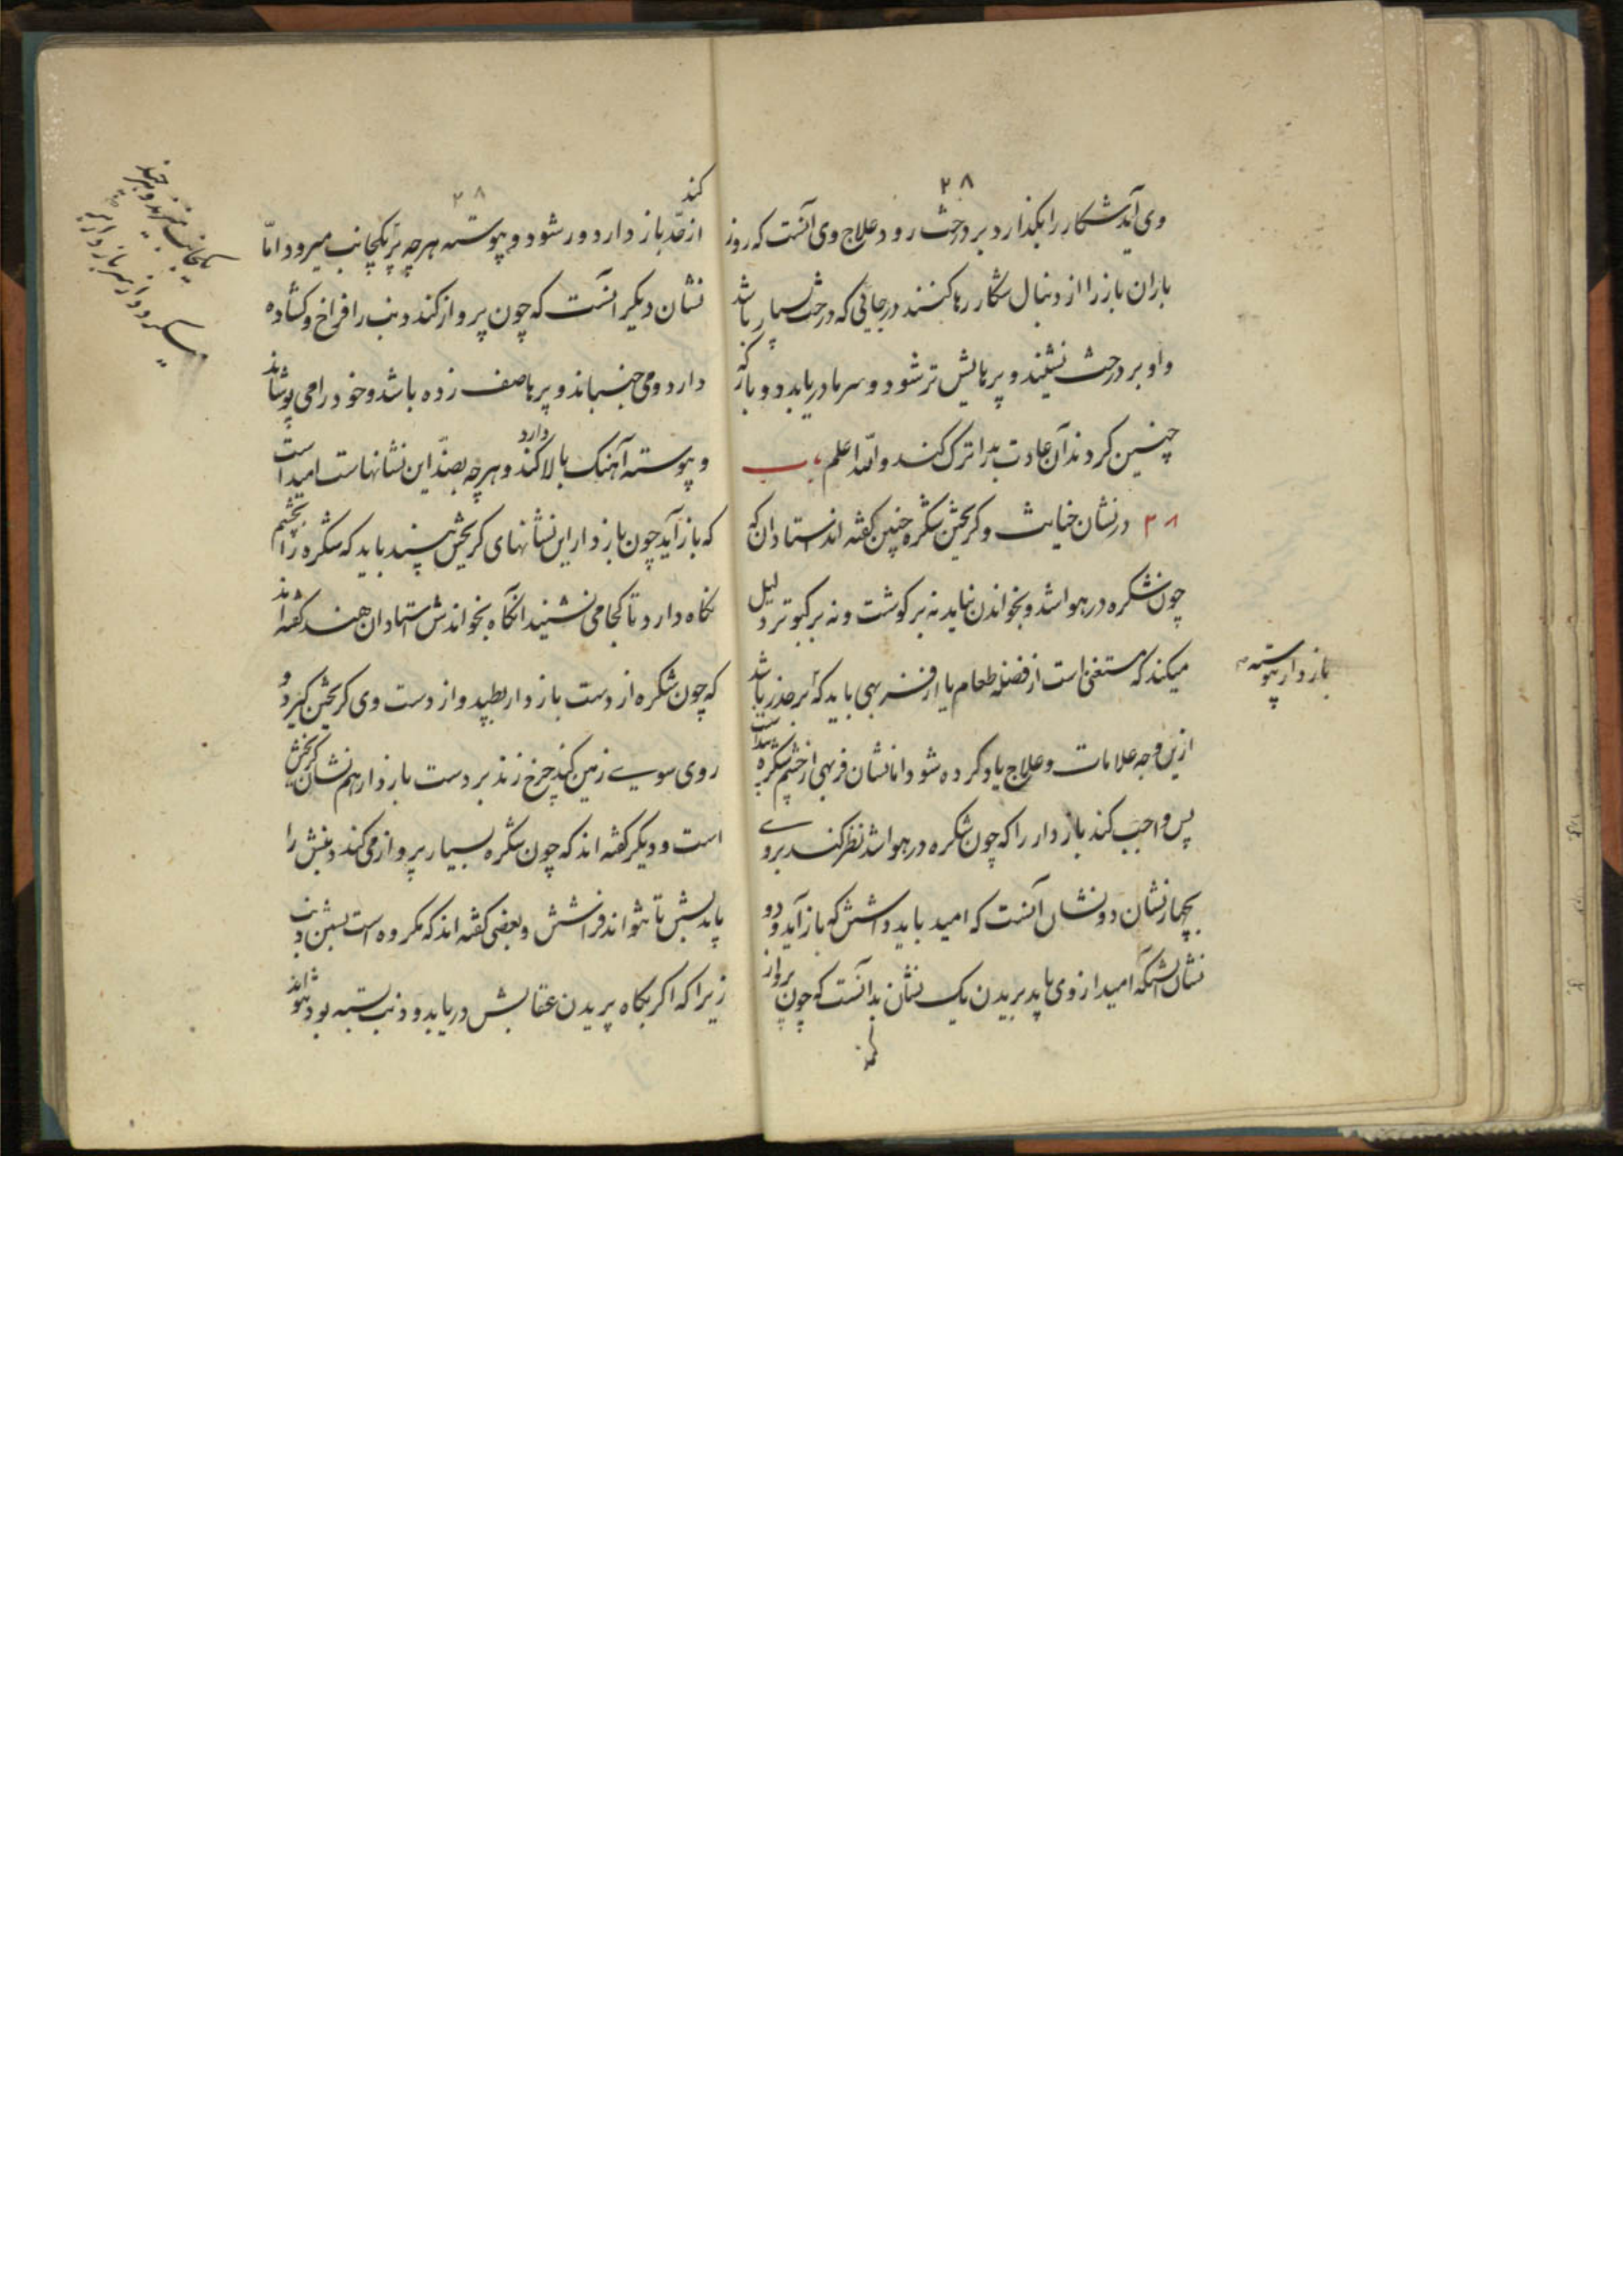 ۲۸
وی آید شکار را بکذارد بر درخت رود علاج وی آنست که روز
باران باز را از دنبال شکار رها کنند در جائی که درخت بسیار باشد
و او بر درخت نشیند و پرهایش تر شود و سرما دریابد و باز که
چنین کردند آن عادت بد را ترک کند والله اعلم باب
۳۸ در نشان خیانت و کریختن شکره چنین کفته اند استادان که
چون شکره در هوا شد و بخواندن نیاید نه بر کوشت و نه بر کبوتر دلیل
میکند که مستغنی است از فضله طعام یا از فربهی باید که بر حذر باشد
بازدار پیوسته
ازین وجه علامات و علاج یاد کرده شود اما نشان فربهی از خشم شکره
پس واجب کند بازدار را که چون شکره در هوا شد نظر کند بروے
بچهار نشان دو نشان آنست که امید باید داشتش که باز آید و دو
نشان آنکه امید از وی باید بریدن یک نشان بد آنست که چون پرواز
کند
۲۸
کند
از حد بازدار دور شود و پیوسته هرچه پر یکجانب میرود امّا
نشان دیکر آنست که چون پرواز کند دنب را فراخ و کشاده
دارد و می جنباند و پرها صف زده باشد و خود را می پوشاند
و پیوسته آهنک بالا کند دارد و هرچه بضد این نشانهاست امید است
که باز آید چون بازدار این نشانهای کریختن بیند باید که شکره را بچشم
نکاه دارد تا کجا می نشیند آنکاه بخواندش استادان هند کفته اند
که چون شکره از دست بازدار بطپد و از دست وی کریختن کیرد و
روی سوے زمین کند چرخ زند بر دست بازدار هم نشان کریختن
است و دیکر کفته اند که چون شکره بسیار پرواز می کند دنبش را
باید بستن تا نتواند فراشتش و بعضی کفته اند که مکروه است بستن دنب
زیرا که اکر بکاه پریدن عقابش دریابد و دنب بسته بود نتواند